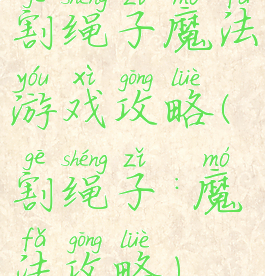 gē shéng zǐ mó fǎ
割绳子魔法
yóu xì gōng lüè
游戏攻略(
gē shéng zǐ mó
割绳子:魔
fǎ gōng lüè
法攻略)